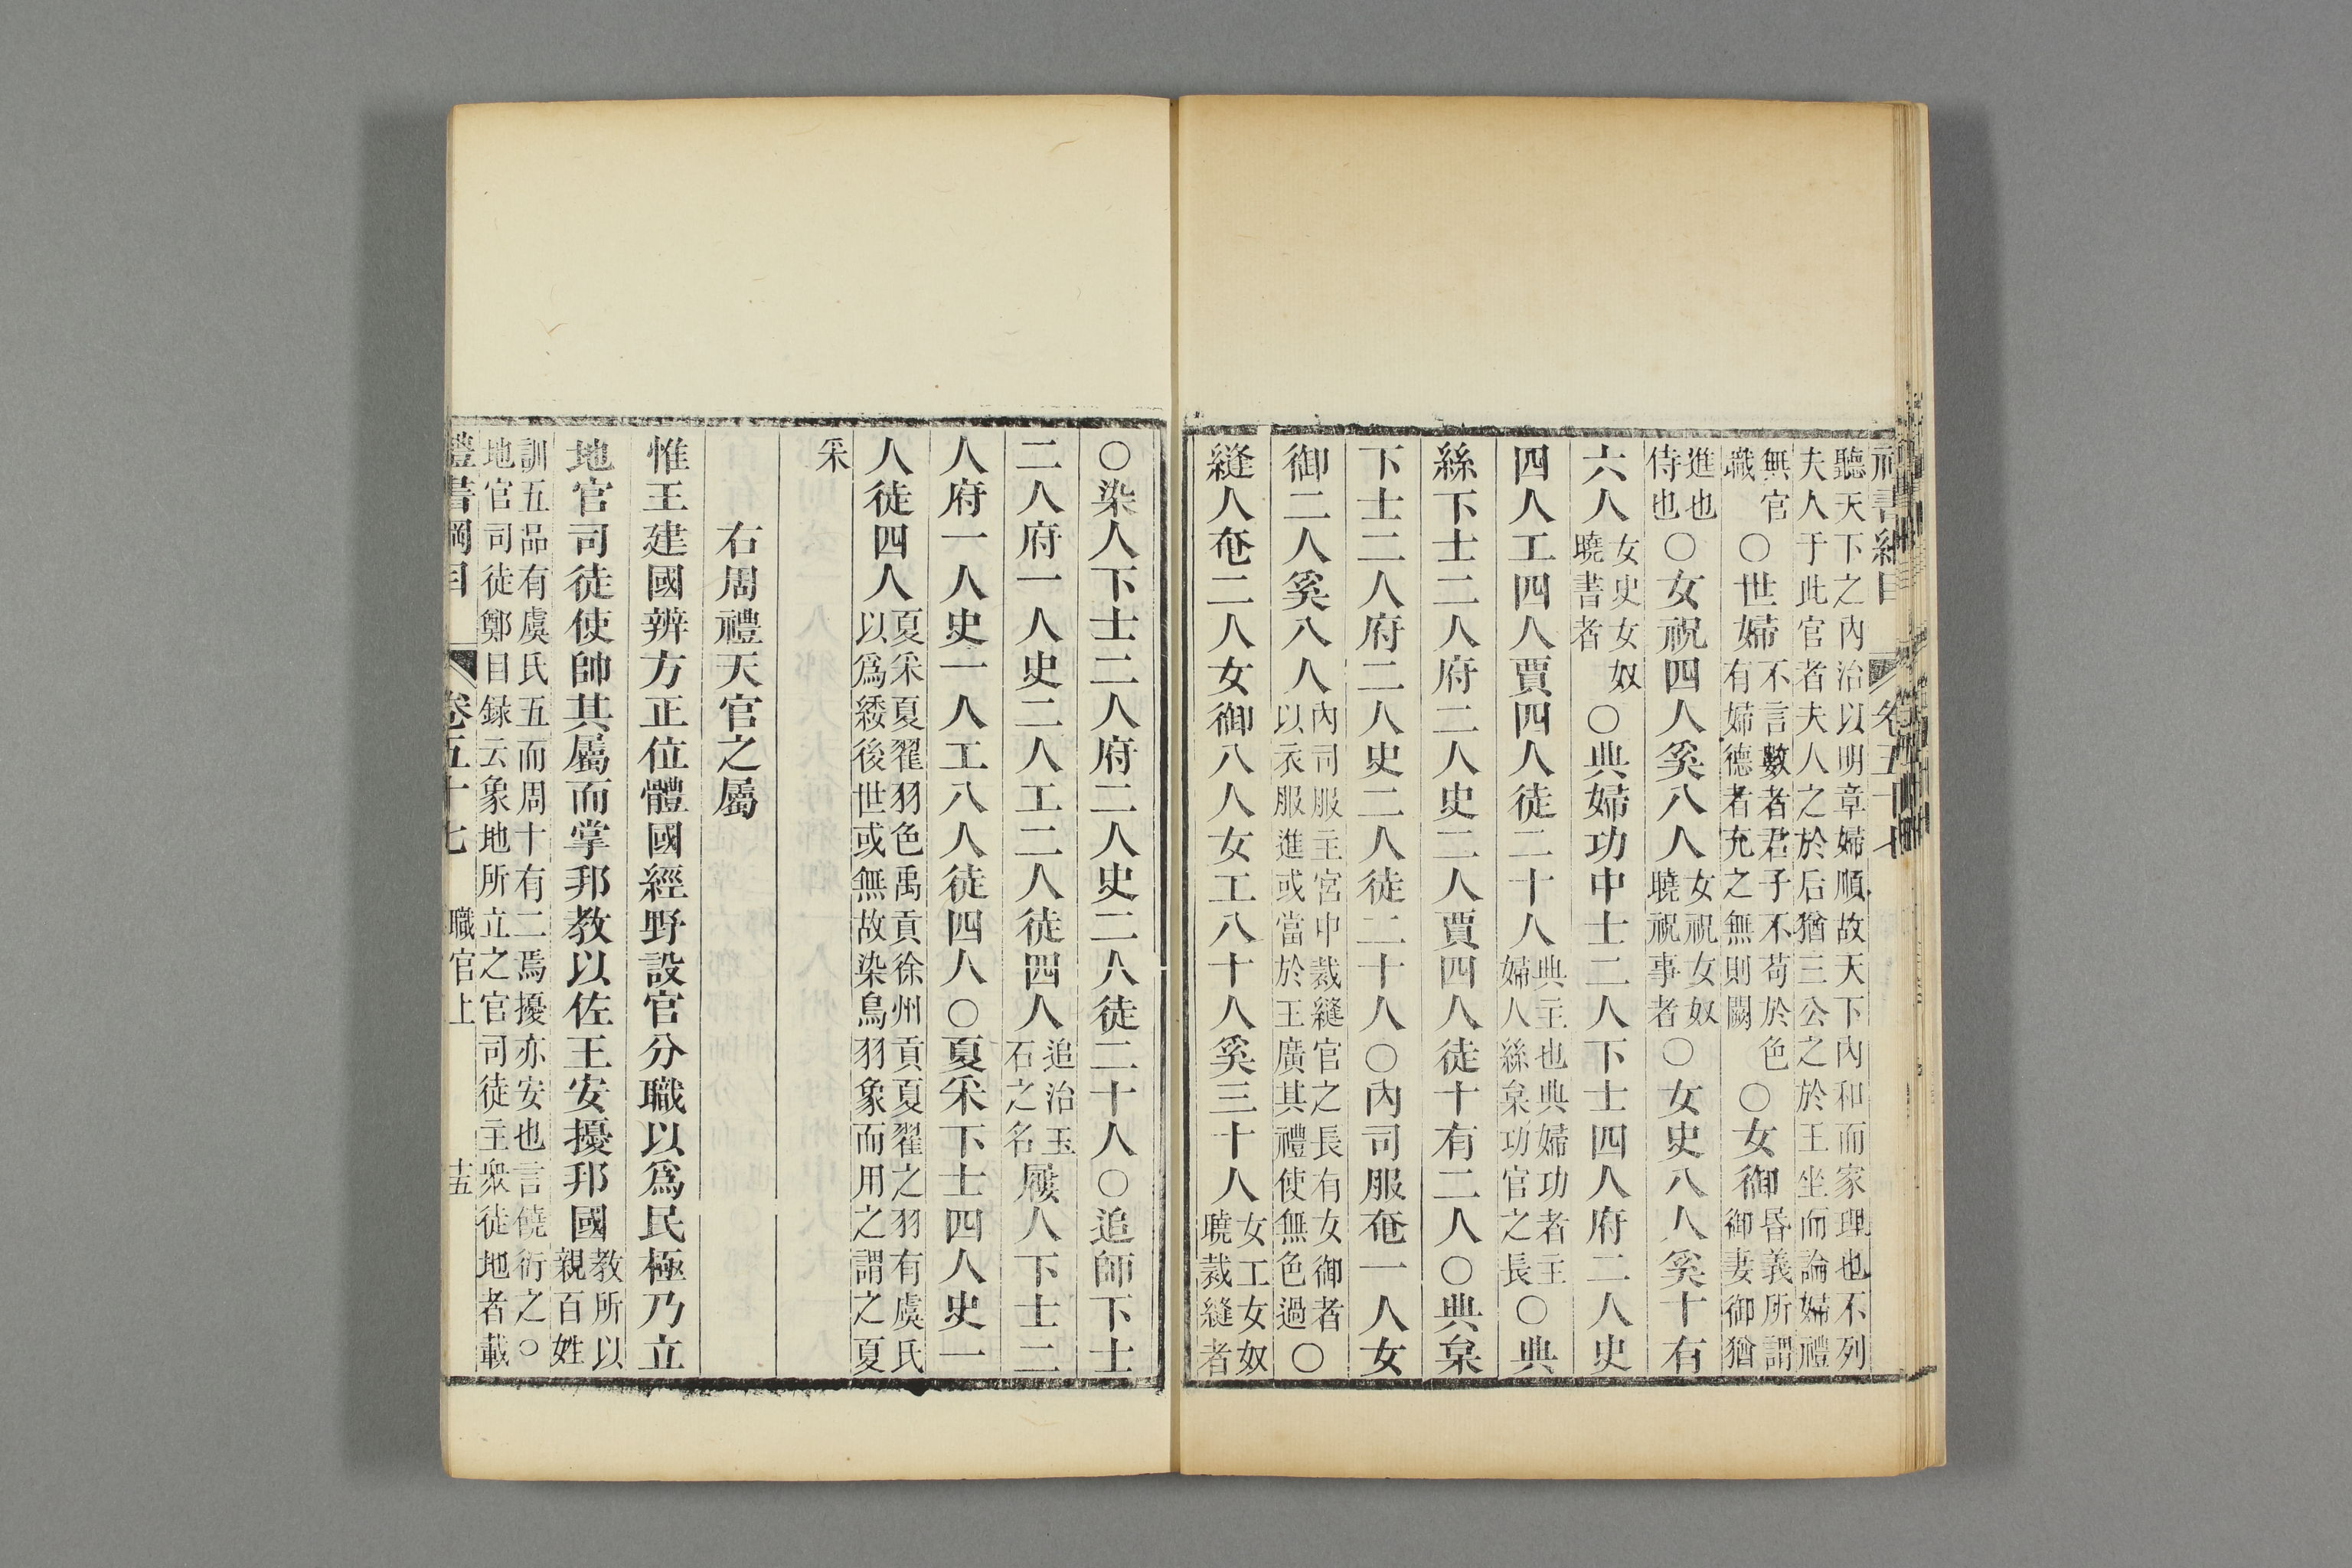 禮書綱目 卷五十七
聽天下之內治以明章婦順故天下內和而家理也不列
夫人于此官者夫人之於后猶三公之於王坐而論婦禮
無官
職 ○世婦 不言數者君子不苟於色
有婦德者充之無則闕 ○女御 昏義所謂
御妻御猶
進也
侍也 ○女祝四人奚八人 女祝女奴
曉祝事者 ○女史八人奚十有
六人 女史女奴
曉書者 ○典婦功中士二人下士四人府二人史
四人工四人賈四人徒二十人 典主也典婦功者主
婦人絲枲功官之長 ○典
絲下士二人府二人史二人賈四人徒十有二人○典枲
下士二人府二人史二人徒二十人○內司服奄一人女
御二人奚八人 內司服主宮中裁縫官之長有女御者
以衣服進或當於王廣其禮使無色過 ○
縫人奄二人女御八人女工八十人奚三十人 女工女奴
曉裁縫者
○染人下士二人府二人史二人徒二十人○追師下士
二人府一人史二人工二人徒四人 追治玉
石之名 屨人下士二
人府一人史一人工八人徒四人○夏采下士四人史一
人徒四人 夏采夏翟羽色禹貢徐州貢夏翟之羽有虞氏
以爲緌後世或無故染鳥羽象而用之謂之夏
采
右周禮天官之屬
惟王建國辨方正位體國經野設官分職以爲民極乃立
地官司徒使帥其屬而掌邦教以佐王安擾邦國 教所以
親百姓
訓五品有虞氏五而周十有二焉擾亦安也言饒衍之○
地官司徒鄭目録云象地所立之官司徒主衆徒地者載
禮書綱目 卷五十七 職官上 十五